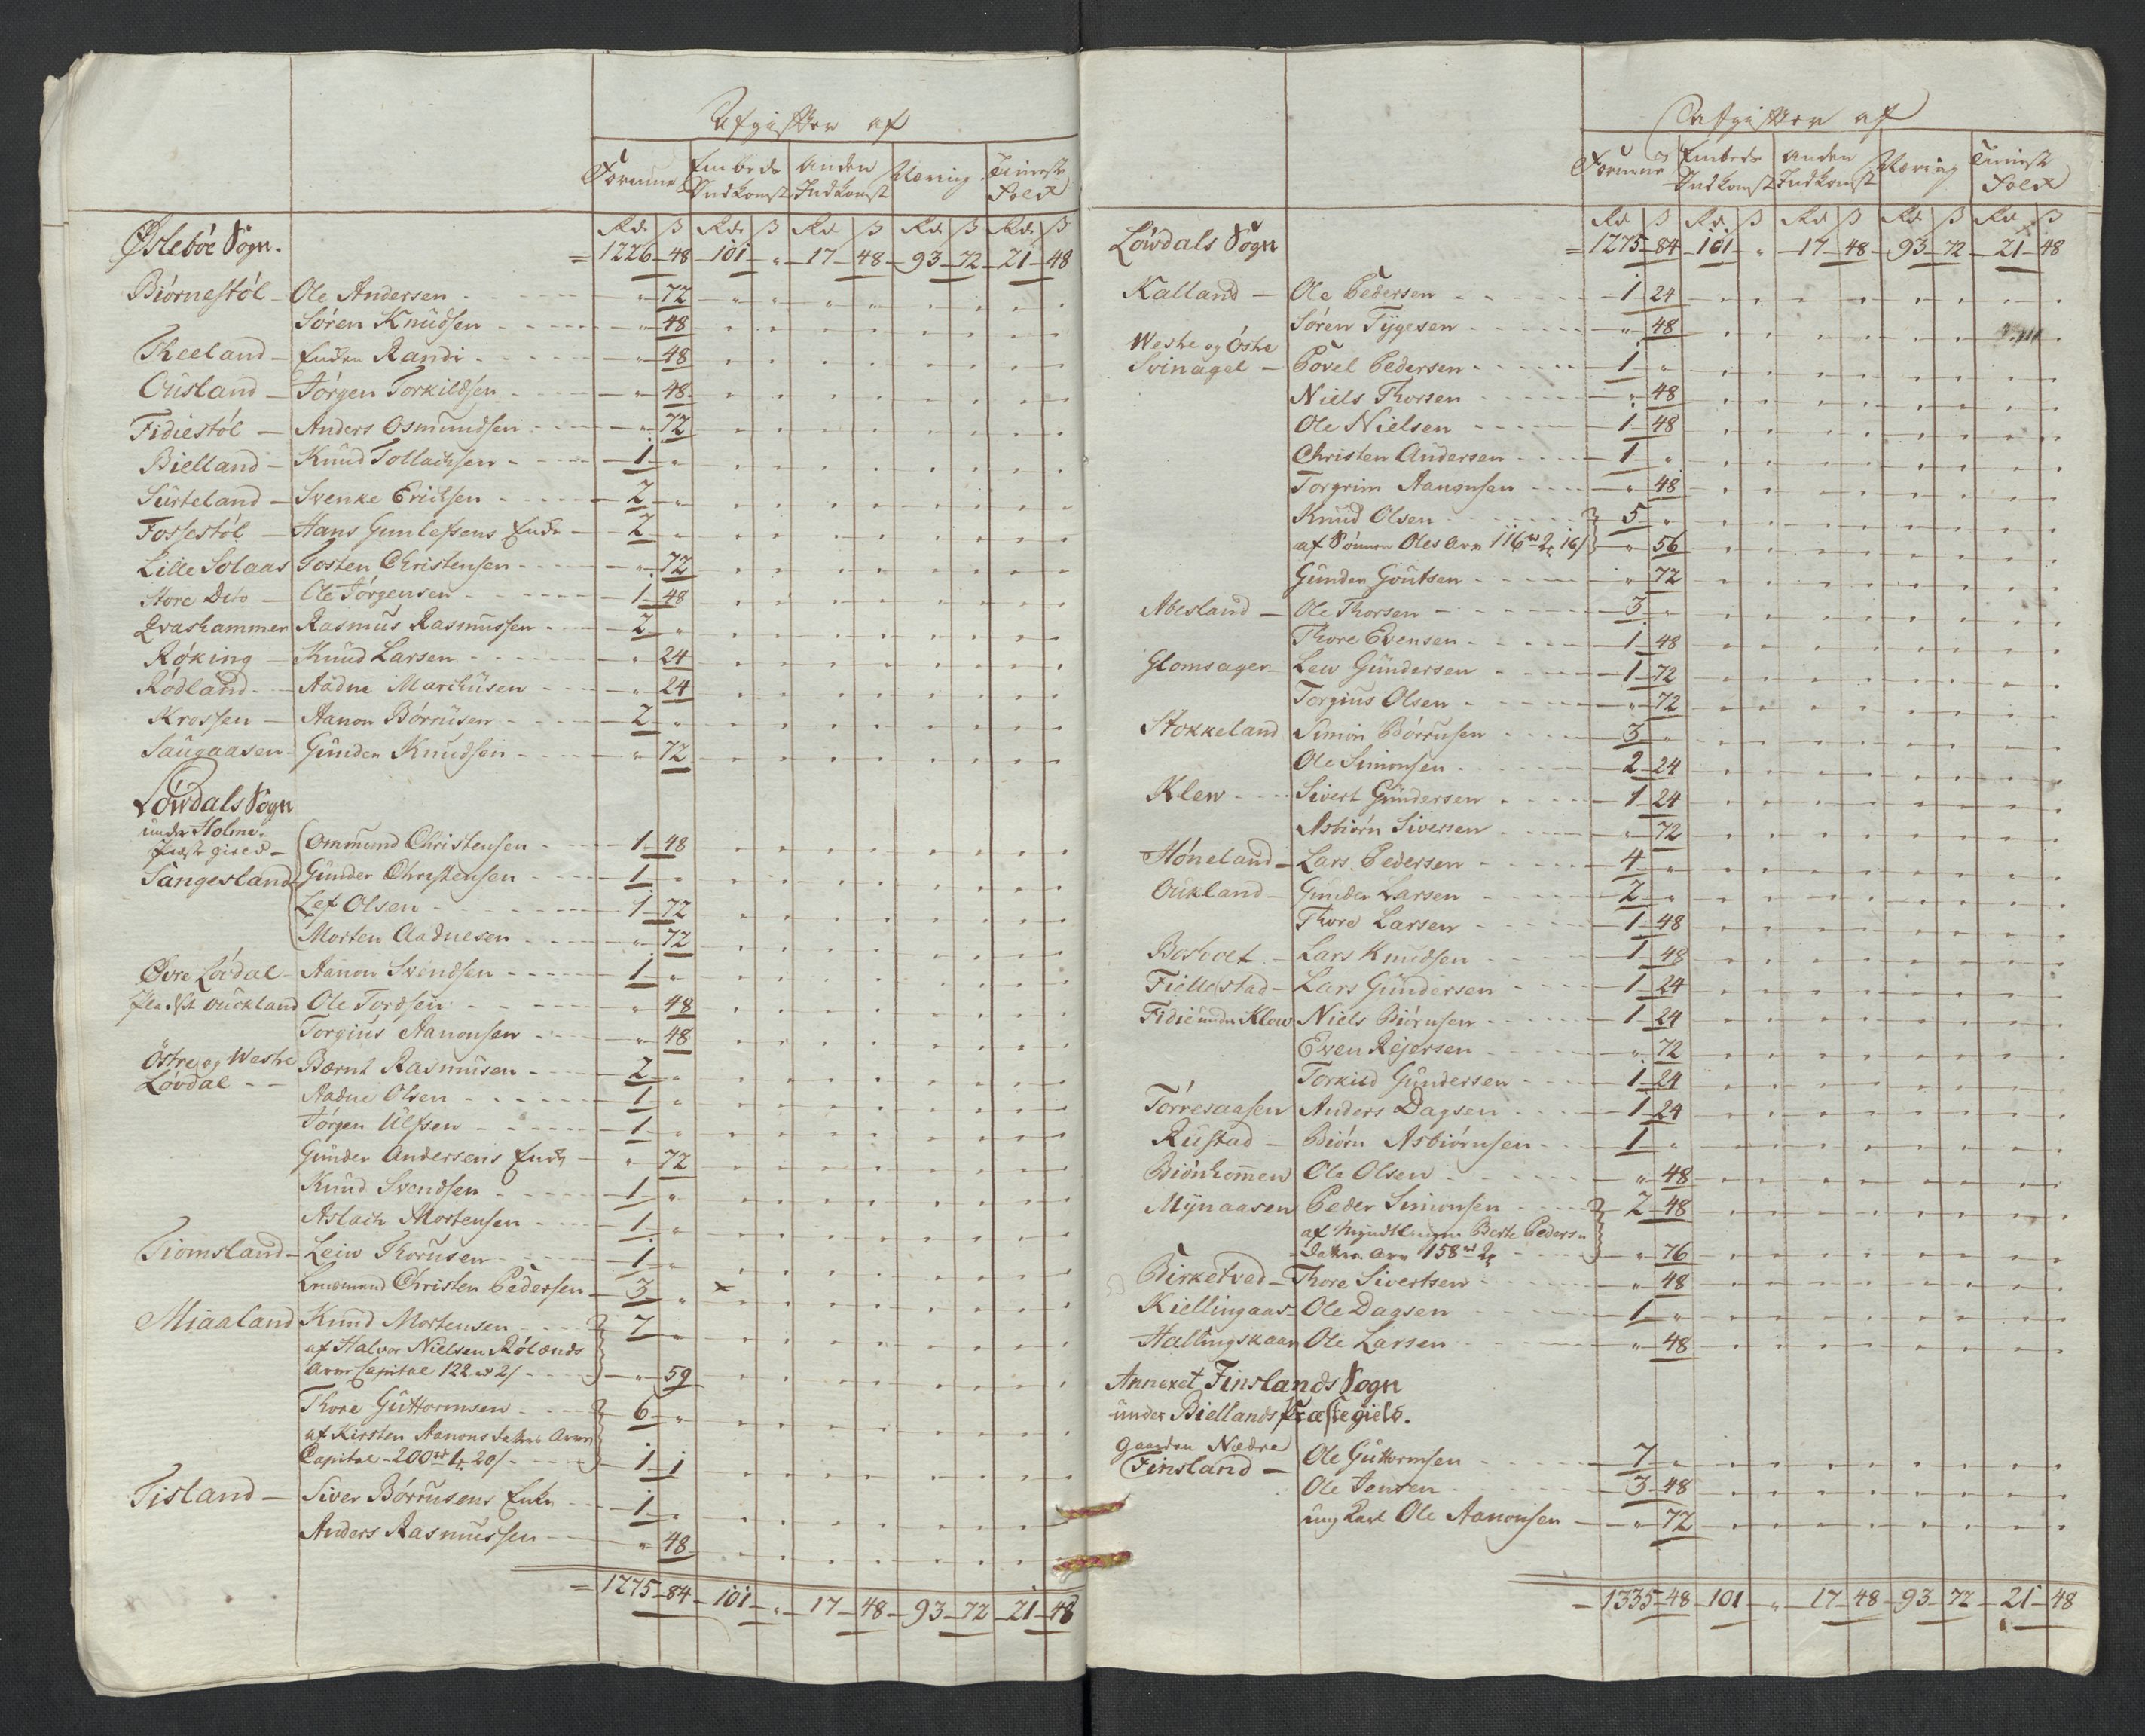 Afgifter af
Formue Embeds Indkomst Anden Indkomst Næring Tieniste Folk
Rd ß Rd ß Rd ß Rd ß Rd ß
Øslebøe Sogn. = 1226 48 101 " 17 48 93 72 21 48
Biørnestøl Ole Andersen " 72
Søren Knudsen " 48
Theeland Enken Randi " 48
Ousland Jørgen Torkildsen " 48
Fidiestøl Anders Osmundsen " 72
Bielland Knud Tollachsen 1 "
Surteland Svenke Erichsen 2 "
Fossestøl Hans Gunlefsens Enke 2 "
Lille Solaas Tosten Christensen " 72
Store Ole Jørgensen 1 48
Qvashammer Rasmus Rasmussen 2 "
Røking Knud Larsen " 24
Rødland Aadne Marchusen " 24
Krossen Aanon Børrusen 2 "
Saugaasen Gunder Knudsen " 72
Løvdals Sogn
under Holme
Præstegield
Ommund Christensen 1 48
Sangesland Gunder Christensen 1 "
Lef Olsen 1 72
Morten Aadnesen " 72
Øvre Løvdal Aanon Svendsen 1 "
Pladst Ouckland Ole Tordsen " 48
Torgius Aanonsen " 48
Østre og Westre Løvdal Bærnt Rasmusen 2 "
Aadne Olsen 1 "
Jørgen Ulfsen 1 "
Gunder Andersens Enke " 72
Knud Svendsen 1 "
Aslach Mortensen 1 "
Tiomsland Leiw Thorusen 1 "
Lensmand Christen Pedersen 3 " ×
Miaaland Knud Mortensen 7 "
af Halvor Nielsen Rølands
Arve Capital 122 rd 2 ß " 59
Thore Guttormsen 6 "
af Kirsten Aanons datters Arve
Capital 200 rd 1 20 ß 1 1
Tisland Siver Børrusens Enke 1 "
Anders Rasmussen " 48
= 1275 84 101 " 17 48 93 72 21 48
Afgifter af
Formue Embeds Indkomst Anden Indkomst Næring Tieniste Folk
Rd ß Rd ß Rd ß Rd ß Rd ß
Løvdals Sogn = 1275 84 101 " 17 48 93 72 21 48
Kalland Ole Pedersen 1 24
Søren Tygesen " 48
Westre og Østre
Svinagel Povel Pedersen 1 "
Niels Thorsen " 48
Ole Nielsen 1 48
Christen Andersen 1 "
Torgrim Aanonsen " 48
Knud Olsen 5 "
af Sønnen Oles Arv 116 rd 2 16 ß " 56
Gunder Goutsen " 72
Abesland Ole Thorsen 3 "
Thore Evensen 1 48
Glomsager Lew Gundersen 1 72
Torgius Olsen " 72
Stokkeland Simon Børrusen 3 "
Ole Simonsen 2 24
Klew Sivert Gundersen 1 24
Asbiørn Siversen " 72
Høneland Lars Pedersen 4 "
Oukland Gunder Larsen 2 "
Thore Larsen 1 48
Lars Knudsen 1 48
Fiellestad Lars Gundersen 1 24
Fidie under Klew Niels Biørnsen 1 24
Even Rejersen " 72
Torkild Gundersen 1 24
Tørresaasen Anders Dagsen 1 24
Rustad Biørn Asbiørnsen 1 "
Ole Olsen " 48
Mynaasen Peder Simonsen 2 48
af Myndtlingen Berte Peders
Datters Arv 158 rd 2 " 76
Birketved Thore Sivertsen " 48
Kiellingaas Ole Dagsen 1 "
Hallingskaar Ole Larsen " 48
Annexet Finslands Sogn
under Biellands Præstegield.
Gaarden Nedre
Finsland Ole Guttormsen 7 "
Ole Jensen 3 48
ung Karl Ole Aanonsen " 72
= 1335 48 101 " 17 48 93 72 21 48